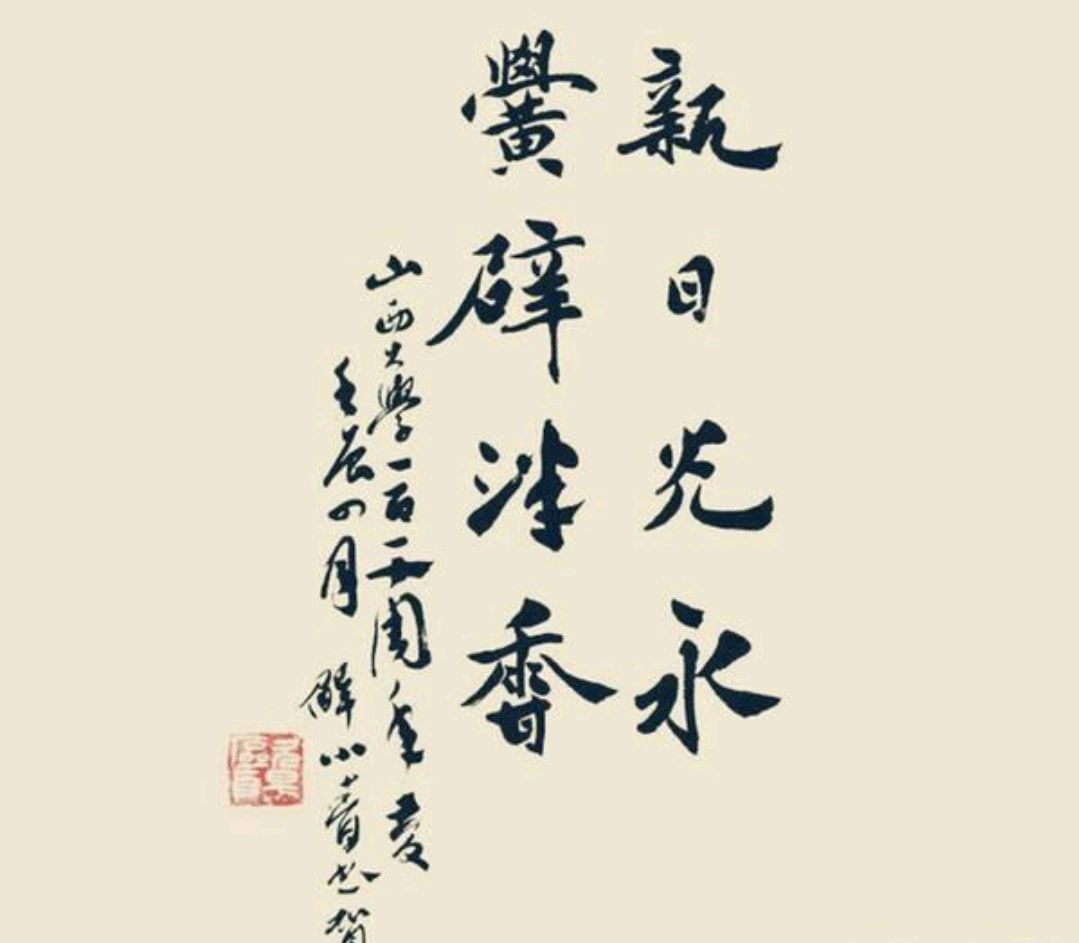 親日光永
黌辟泮香
山西大學一百一十周年慶
壬辰四月 解小青書賀